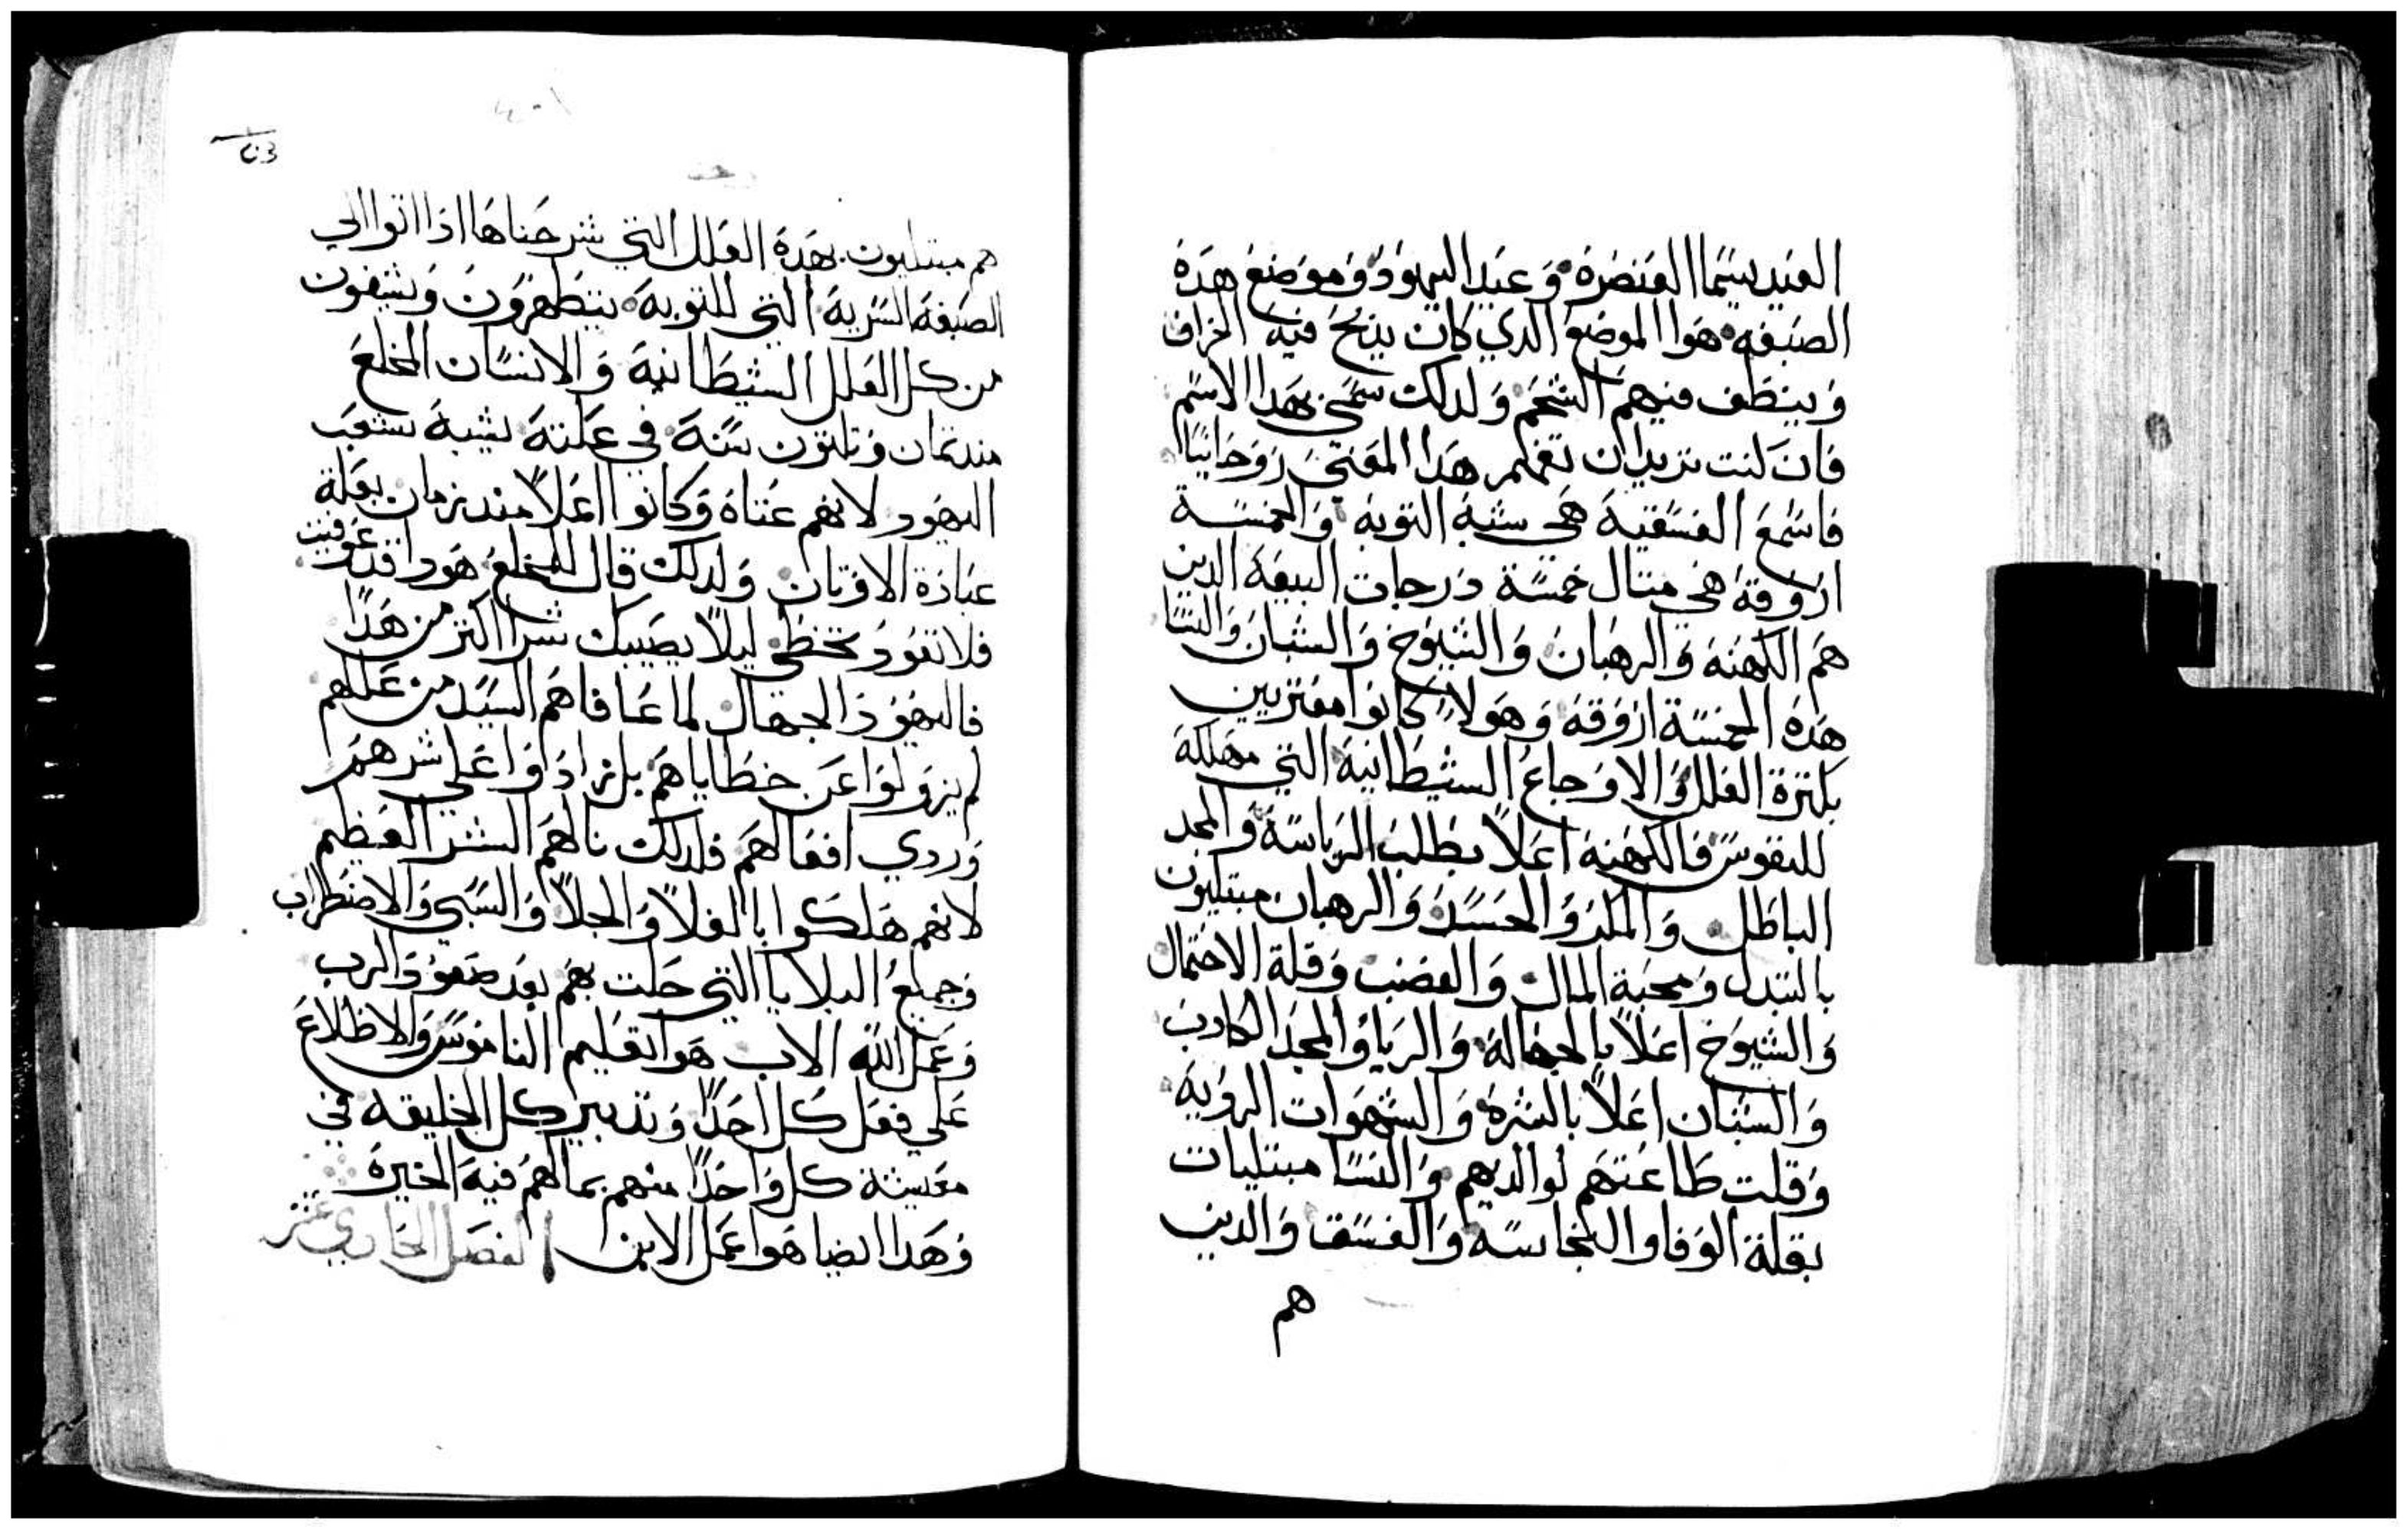 العيد يسما العنصرة وعيد اليهود وموضع هده
الصبغه هوا الموضع الدي كان يدبح فيه الخراف
وينطف فيهم الشحم ولدلك سمي بهدا الاسم
فان كنت تريد ان تفهم هدا المعني روحانيًا
فاسمع الفسقيه هي سنة التوبه والخمسة
اروقة هي متال خمسة درجات البيعة الدين
هم الكهنة والرهبان والشيوخ والشبان والنسا
هده الخمسة اروقة وهولاء كانوا معتريين
بكترة العلل والاوجاع الشيطانية التي مهلكة
للنفوس فالكهنه اعلاً بطلب الرياسة والمجد
الباطل والمكر والحسد والرهبان مبتليون
بالتبدل ومحبة المال والغضب وقلة الاحتمال
والشيوخ اعلاً بالجهالة والريا والمجد الكادب
والشبان اعلاً بالشره والشهوات الرديه
وقلت طاعتهم لوالديهم والنسا مبتليات
بقلة الوفا والنجاسه والفسق والدين
هم
هم مبتليون بهده العلل التي شرحناها ادا اتوا الي
الصبغة السرية التي للتوبة يتطهرون ويشفون
من كل العلل الشيطانية والانسان المخلع
مند تمان وتلتون سنة في علته يشبه شعب
اليهود لانهم عتاه وكانوا اعلاً مند زمان بعلة
عبادة الاوتان ولدلك قال للمخلع هودا قد عوفيت
فلا تعود تخطي ليلاً يصيبك شراً اكتر من هداً
فاليهود الجهال لما عافاهم السيد من عللهم
لم يزولوا عن خطاياهم بل زادوا علي شرهم
وردي افعالهم فلدلك نالهم الشر العظيم
لانهم هلكوا بالغلاً والجلاً والسبي والاضطراب
وجميع البلايا التي حلت بهم بعد صعود الرب
وعمل الله الاب هو اتعليم الناموس والاطلاع
علي فعل كل احداً وتدبير كل الخليقه في
معيشة كل واحداً منهم بما لهم فيه الخيرة
وهدا ايضا هوا عمل الابن الفصل الحادي عشر